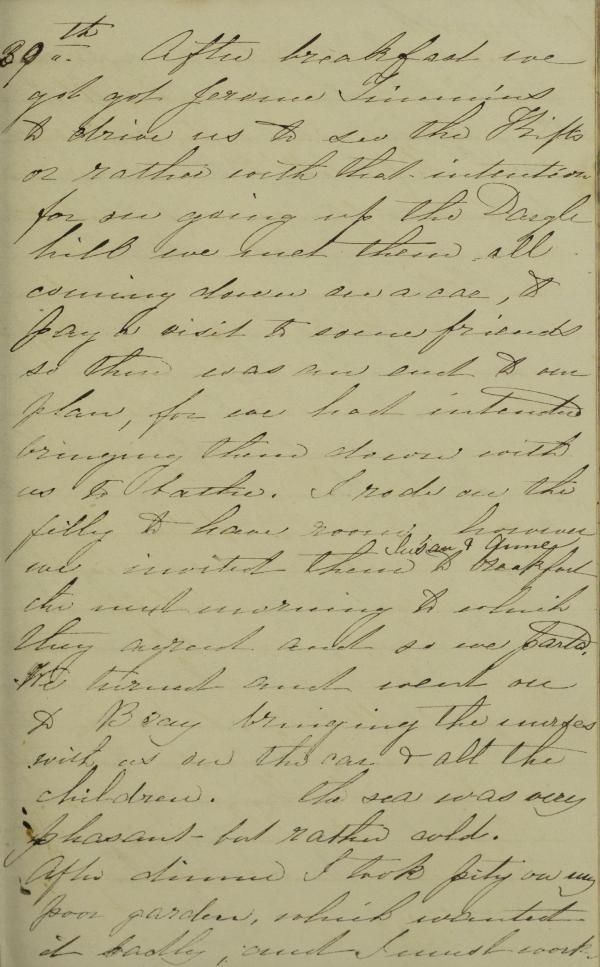 30th. After breakfast we
got got Jerome Timmins
to drive us to see the Kifts
or rather with that intention
for on going up the Dargle
hill we met them all
coming down on a car, to
pay a visit to some friends
so there was an end to our
plan, for we had intended
bringing them down with
us to bathe. I rode on the
filly to have room, however
Susan & Anne
we invited them to breakfast
the next morning to which
they agreed and so we parted.
We turned and went on
to Bray bringing the nurses
with us on the car & all the
children. the sea was very
pleasant - but rather cold.
After dinner I took pity on my
poor garden, which wanted
it badly, and I must work-